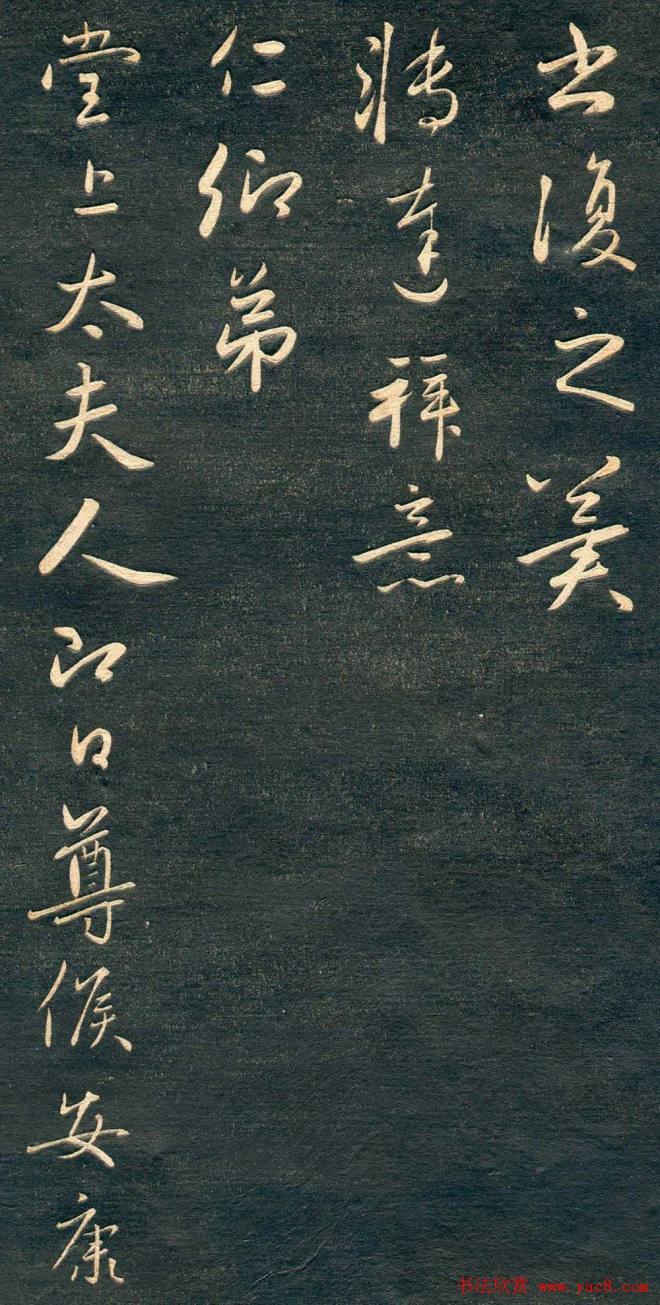 出復之美
將達祥意
仁卿弟
堂上太夫人即日尊候安康
书法欣赏 www.yac8.com